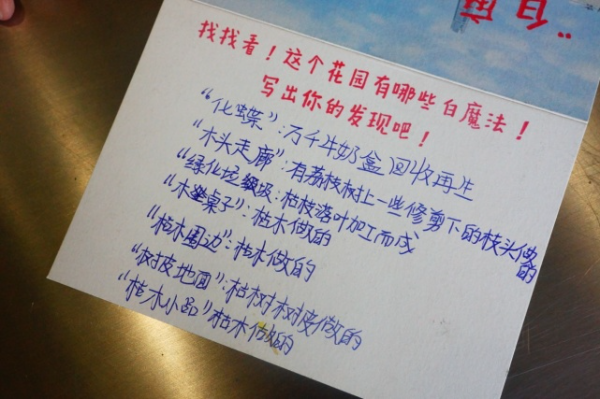 找找看！这个花园有哪些白魔法！
写出你的发现吧！
“化蝶”：万千牛奶盒回收再生
“木头走廊”：有荔枝树上一些修剪下的枝头做的
“绿化垃圾圾：枯枝落叶加工而成
“木桌子”：枯木做的
“枯木围边”：枯木做的
“树皮地面”：枯树树皮做的
“枯木小品”枯木做的